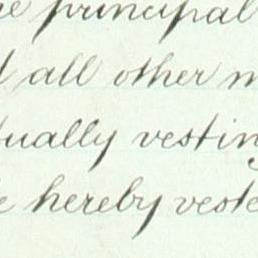 principal
all other
tually vestin
hereby veste